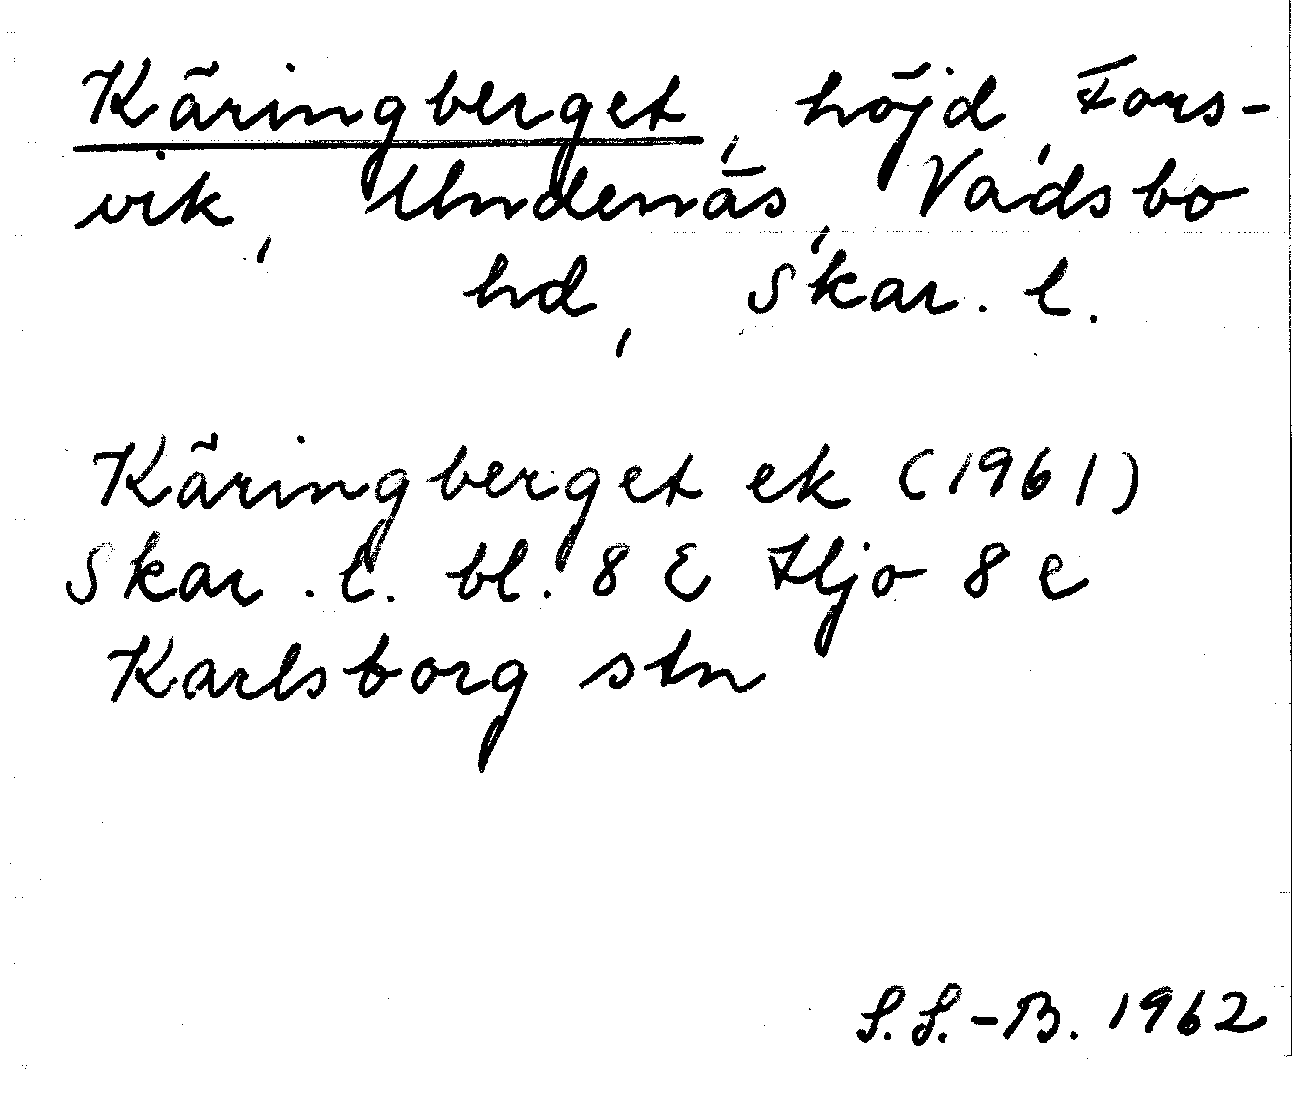 Käringberget, höjd, Fors-
vik, Undenäs, Vadsbo
hd, Skar. l.
Käringberget ek (1961)
Skar. l. bl. 8 E Hjo 8 e
Karlsborg stn
S.S.-B. 1962